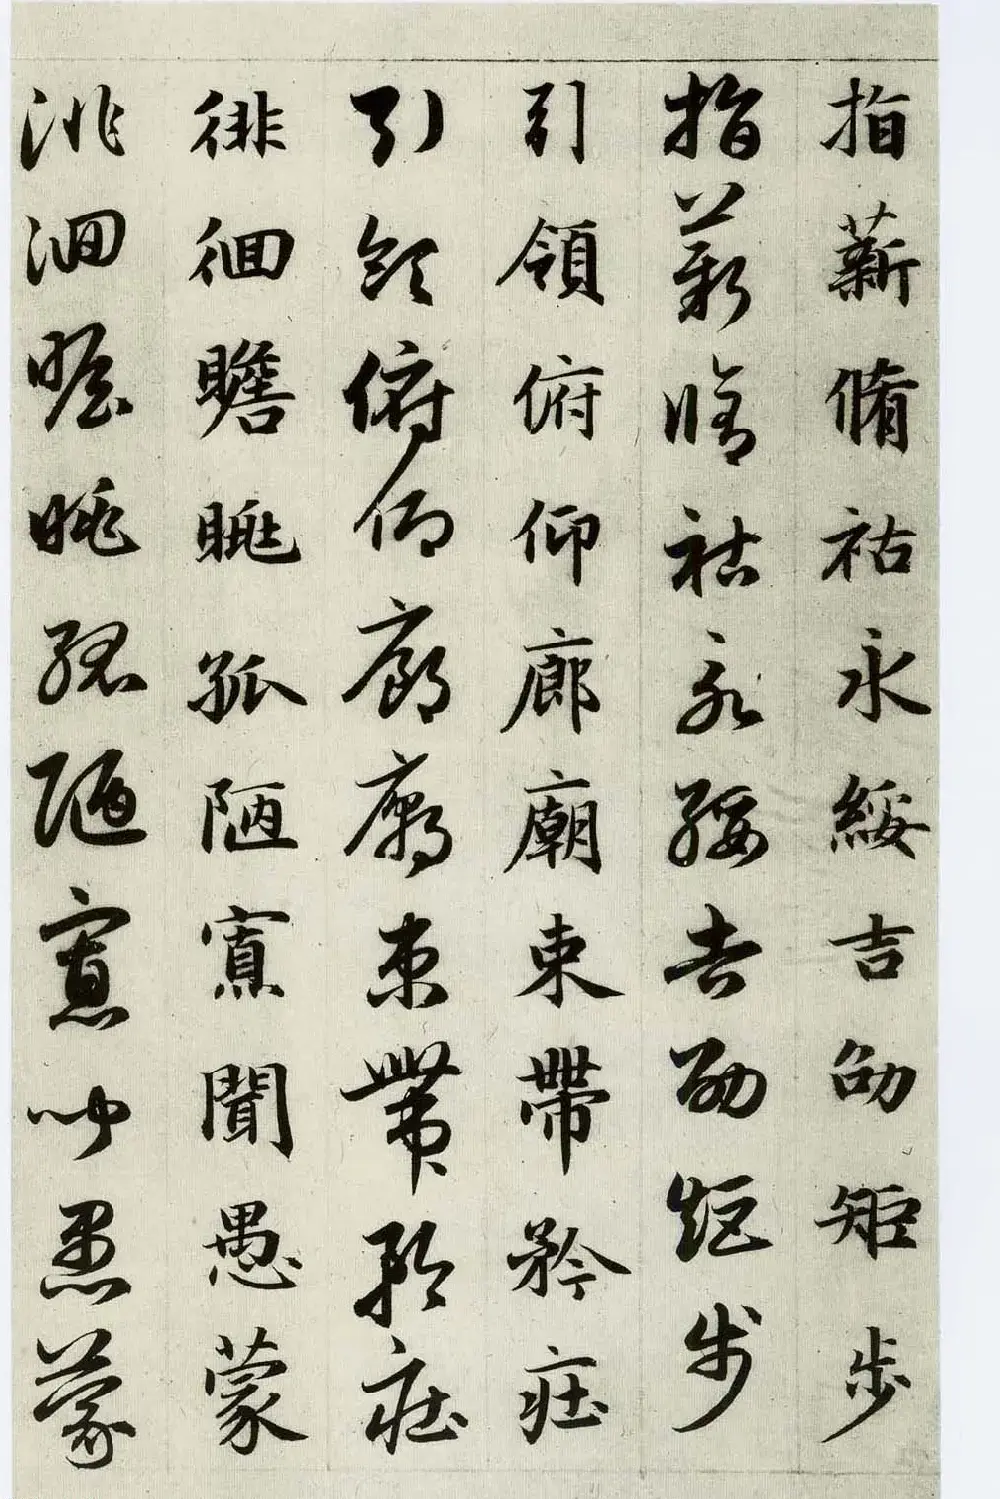 指薪脩祜永綏吉劭矩步
指薪脩祜永綏吉劭矩步
引領俯仰廊廟束帶矜莊
引領俯仰廊廟束帶矜莊
徘徊瞻眺孤陋寡聞愚蒙
徘徊瞻眺孤陋寡聞愚蒙